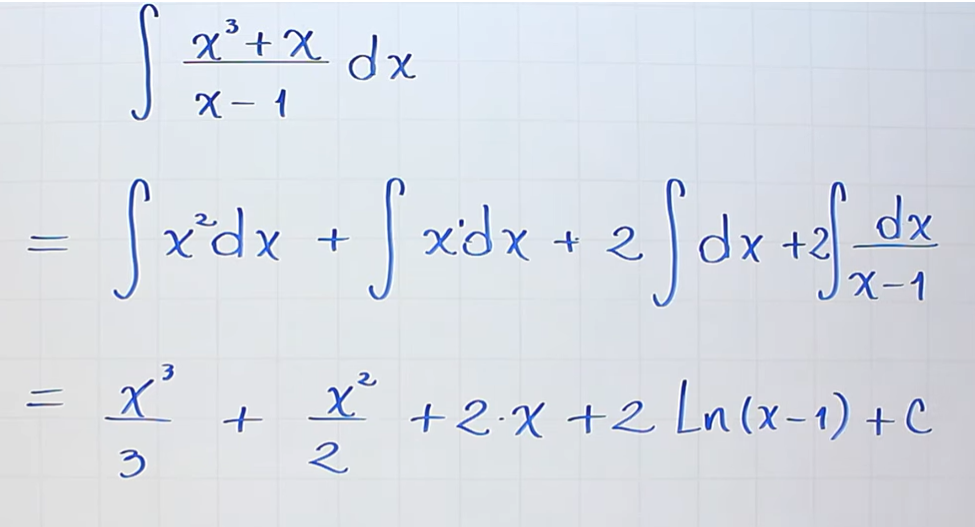 ∫ (x³ + x)/(x − 1) dx
= ∫ x² dx + ∫ x¹ dx + 2 ∫ dx + 2 ∫ dx/(x − 1)
= x³/3 + x²/2 + 2·x + 2 Ln(x − 1) + C